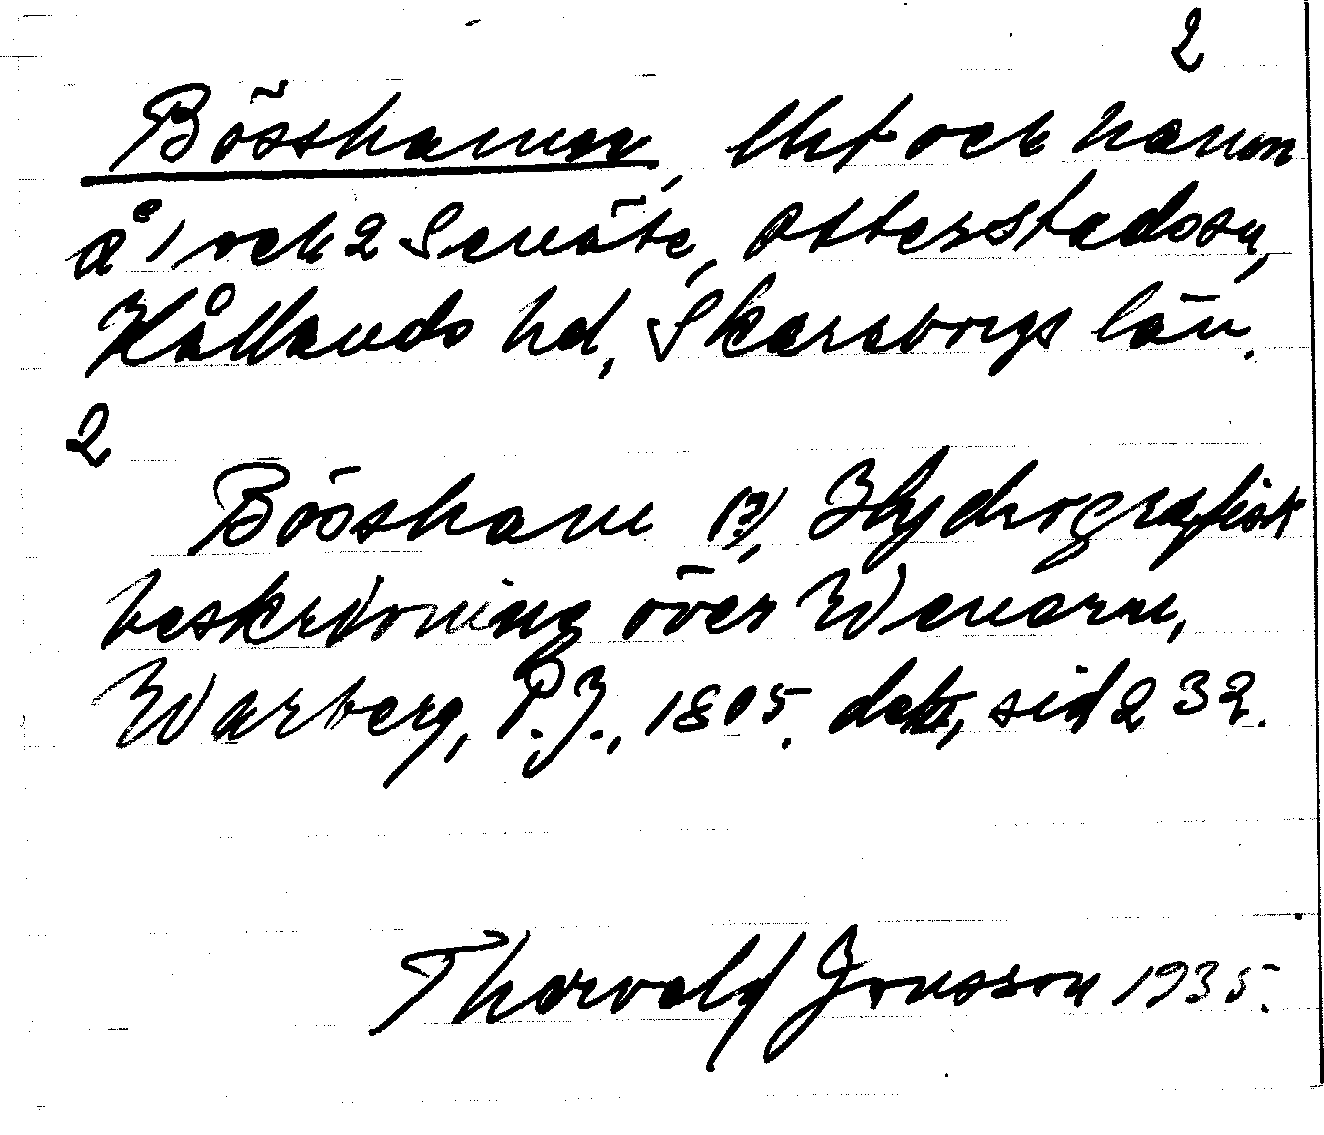 2
Bösshamn, lht och hamn
å 1 och 2 Senäte, Otterstads sn,
Kållands hd, Skaraborgs län.
2
Bösshamn (?), Hydrografisk
beskrivning över Wenern,
Warberg, P.J., 1805. sid 232.
Thorvald Jonsson 1935.